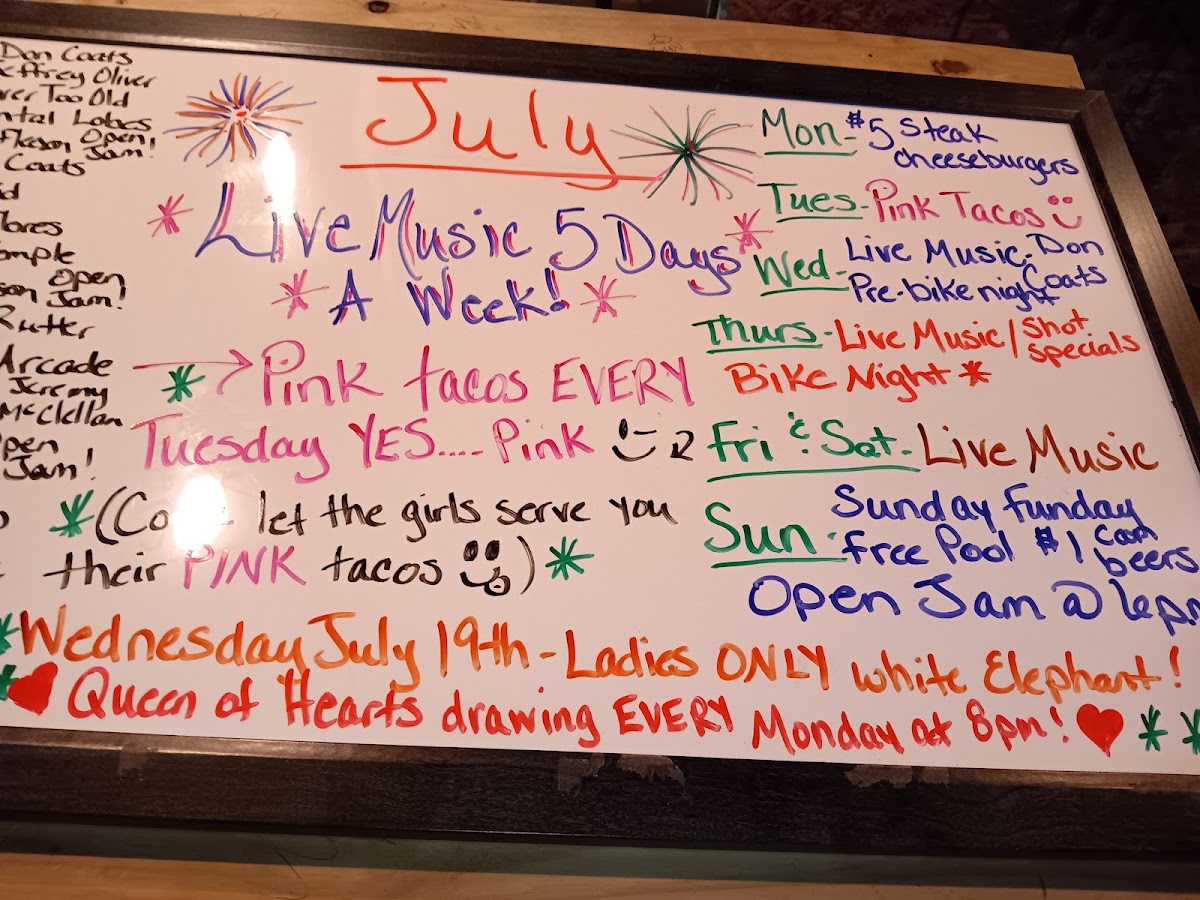 Don Coats
effrey Oliver
Too Old
Lobes
Open
Jam!
Coats
Open
Jam!
Rutter
Arcade
Jeremy
McClellan
Jam!
July
*Live Music 5 Days*
*A Week!*
* Pink tacos EVERY
Tuesday YES.... Pink
*( let the girls serve you
their PINK tacos)*
Mon- $5 Steak
cheeseburgers
Tues- Pink Tacos
Wed- Live Music- Don
Coats
Pre-bike night
Thurs- Live Music/shot
specials
Bike Night *
Fri & Sat- Live Music
Sun- Sunday Funday
free Pool $1 can
beers
Open Jam @
*Wednesday July 19th - Ladies ONLY white Elephant!
Queen of Hearts drawing EVERY Monday at 8pm! * *